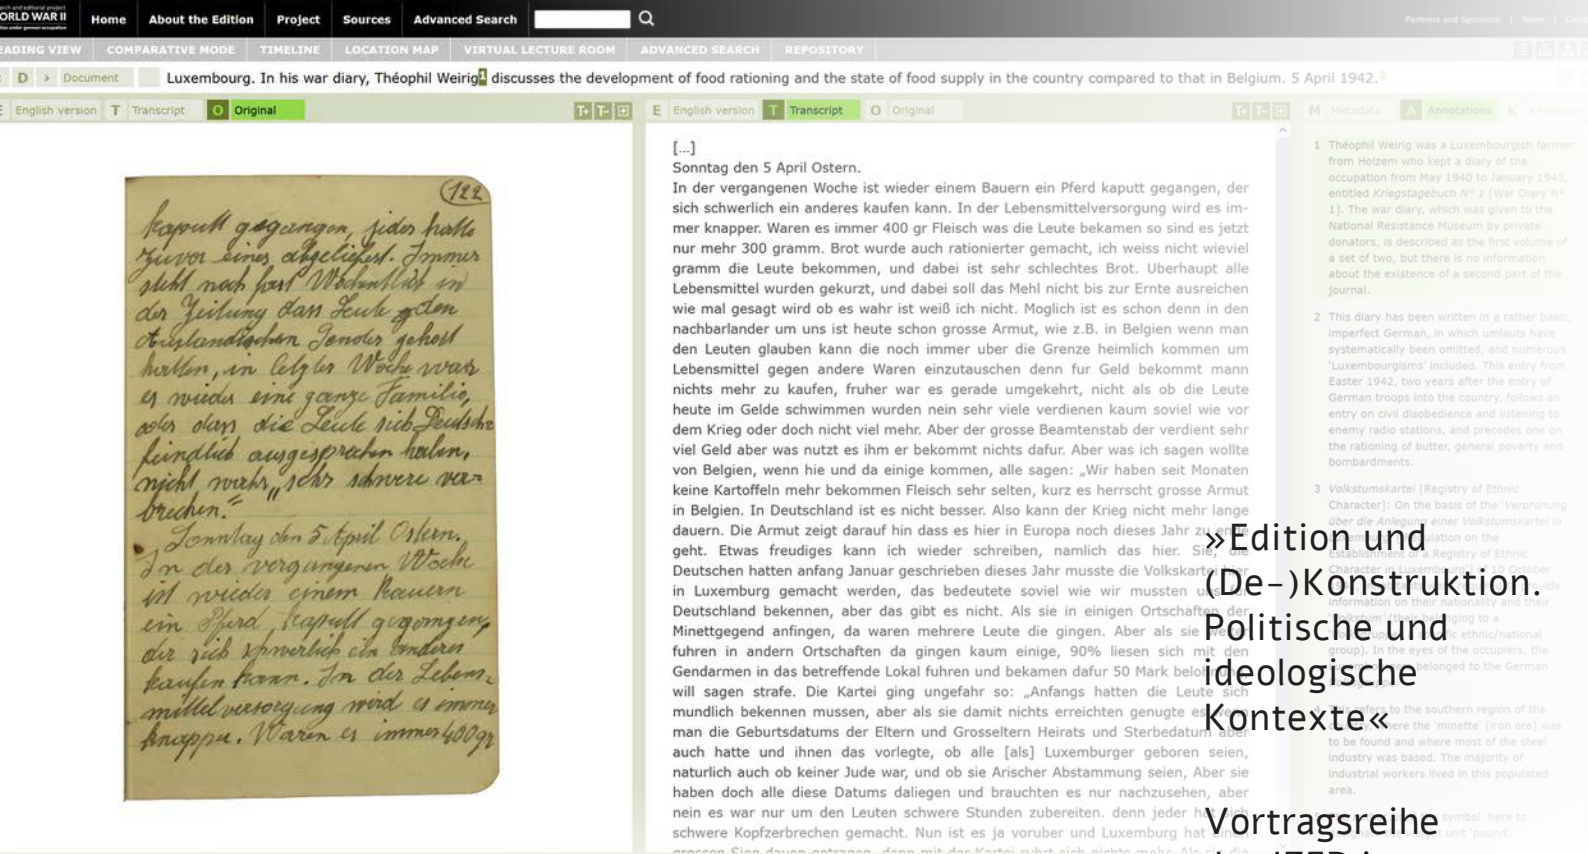 ORLD WAR II
Home About the Edition Project Sources Advanced Search
Partners and Sponsors | Team |
EADING VIEW COMPARATIVE MODE TIMELINE LOCATION MAP VIRTUAL LECTURE ROOM ADVANCED SEARCH REPOSITORY
D > Document Luxembourg. In his war diary, Théophil Weirig1 discusses the development of food rationing and the state of food supply in the country compared to that in Belgium. 5 April 1942.2
E English version T Transcript O Original T+ T-
122
kaputt gegangen, jeder hatte
zuvor eines abgeliefert. Immer
steht noch fast Wochentlich in
der Zeitung dass Leute den
Auslandischen Sender gehort
hatten, in letzter Woche war
es wieder eine ganze Familie,
oder dass die Leute sich Deutsch-
feindlich ausgesprochen haben,
nicht wahr „sehr schwere ver-
brechen."
Sonntag den 5 April Ostern.
In der vergangenen Woche
ist wieder einem Bauern
ein Pferd kaputt gegangen,
der sich schwerlich ein anderes
kaufen kann. In der Lebens-
mittelversorgung wird es immer
knapper. Waren es immer 400 gr
E English version T Transcript O Original T+ T-
[...]
Sonntag den 5 April Ostern.
In der vergangenen Woche ist wieder einem Bauern ein Pferd kaputt gegangen, der
sich schwerlich ein anderes kaufen kann. In der Lebensmittelversorgung wird es im-
mer knapper. Waren es immer 400 gr Fleisch was die Leute bekamen so sind es jetzt
nur mehr 300 gramm. Brot wurde auch rationierter gemacht, ich weiss nicht wieviel
gramm die Leute bekommen, und dabei ist sehr schlechtes Brot. Uberhaupt alle
Lebensmittel wurden gekurzt, und dabei soll das Mehl nicht bis zur Ernte ausreichen
wie mal gesagt wird ob es wahr ist weiß ich nicht. Moglich ist es schon denn in den
nachbarlander um uns ist heute schon grosse Armut, wie z.B. in Belgien wenn man
den Leuten glauben kann die noch immer uber die Grenze heimlich kommen um
Lebensmittel gegen andere Waren einzutauschen denn fur Geld bekommt mann
nichts mehr zu kaufen, fruher war es gerade umgekehrt, nicht als ob die Leute
heute im Gelde schwimmen wurden nein sehr viele verdienen kaum soviel wie vor
dem Krieg oder doch nicht viel mehr. Aber der grosse Beamtenstab der verdient sehr
viel Geld aber was nutzt es ihm er bekommt nichts dafur. Aber was ich sagen wollte
von Belgien, wenn hie und da einige kommen, alle sagen: „Wir haben seit Monaten
keine Kartoffeln mehr bekommen Fleisch sehr selten, kurz es herrscht grosse Armut
in Belgien. In Deutschland ist es nicht besser. Also kann der Krieg nicht mehr lange
dauern. Die Armut zeigt darauf hin dass es hier in Europa noch dieses Jahr zu ende
geht. Etwas freudiges kann ich wieder schreiben, namlich das hier. Sie, die
Deutschen hatten anfang Januar geschrieben dieses Jahr musste die Volkskartei hier
in Luxemburg gemacht werden, das bedeutete soviel wie wir mussten uns fur
Deutschland bekennen, aber das gibt es nicht. Als sie in einigen Ortschaften der
Minettgegend anfingen, da waren mehrere Leute die gingen. Aber als sie weiter
fuhren in andern Ortschaften da gingen kaum einige, 90% liesen sich mit den
Gendarmen in das betreffende Lokal fuhren und bekamen dafur 50 Mark belohnung
will sagen strafe. Die Kartei ging ungefahr so: „Anfangs hatten die Leute sich
mundlich bekennen mussen, aber als sie damit nichts erreichten genugte es wenn
man die Geburtsdatums der Eltern und Grosseltern Heirats und Sterbedatum aber
auch hatte und ihnen das vorlegte, ob alle [als] Luxemburger geboren seien,
naturlich auch ob keiner Jude war, und ob sie Arischer Abstammung seien, Aber sie
haben doch alle diese Datums daliegen und brauchten es nur nachzusehen, aber
nein es war nur um den Leuten schwere Stunden zubereiten. denn jeder hat sich
schwere Kopfzerbrechen gemacht. Nun ist es ja voruber und Luxemburg hat einen
M Metadata A Annotations K
1 Théophil Weirig was a Luxembourgish farmer
from Holzem who kept a diary of the
occupation from May 1940 to January 1943,
entitled Kriegstagebuch N° 1 [War Diary N°
1]. The war diary, which was given to the
National Resistance Museum by private
donators, is described as the first volume of
a set of two, but there is no information
about the existence of a second part of the
journal.
2 This diary has been written in a rather basic,
imperfect German, in which umlauts have
systematically been omitted, and numerous
'Luxembourgisms' included. This entry from
Easter 1942, two years after the entry of
German troops into the country, follows an
entry on civil disobedience and listening to
enemy radio stations, and precedes one on
the rationing of butter, general poverty and
bombardments.
3 Volkstumskartei [Registry of Ethnic
Character]: On the basis of the 'Verordnung
über die Anlegung einer Volkstumskartei in
group). In the eyes of the occupiers, the
belonged to the German
4 This refers to the southern region of the
where the 'minette' (iron ore) was
to be found and where most of the steel
industry was based. The majority of
industrial workers lived in this populated
area.
symbol here to
unit 'pound'.
»Edition und
(De-)Konstruktion.
Politische und
ideologische
Kontexte«
Vortragsreihe